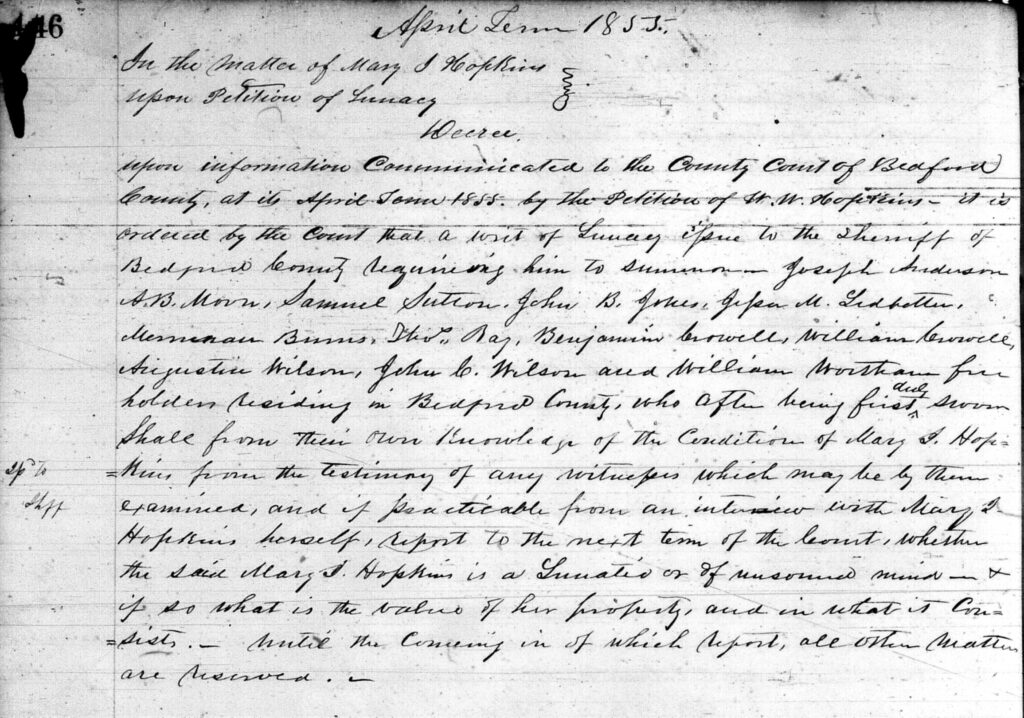 446
April Term 1855.
In the matter of Mary I Hopkins
upon Petition of Lunacy
Decree
upon information Communicated to the County Court of Bedford
County, at its April Term 1855. by the Petition of W. W. Hopkins - it is
ordered by the Court that a writ of Lunacy issue to the Sheriff of
Bedford County requireing him to summon - Joseph Anderson
A.B. Moon, Samuel Sutton, John B. Jones, Jesse M. Ledbetter,
Merriman Burns, Thos. Ray, Benjamin Crowell, William Crowell,
Augustin Wilson, John C. Wilson and William Wortham free
holders residing in Bedford County, who after being first duly sworn
Shall from their own Knowledge of the Condition of Mary I. Hop-
=kins from the testimony of any witnesses which may be by them
examined, and if practicable from an interview with Mary I
Hopkins herself, report to the next term of the Court, whether
the said Mary I. Hopkins is a Lunatic or of unsound mind - &
if so what is the value of her property, and in what it Con-
=sists. - until the Comeing in of which report, all other matters
are reserved. -
to
Shff